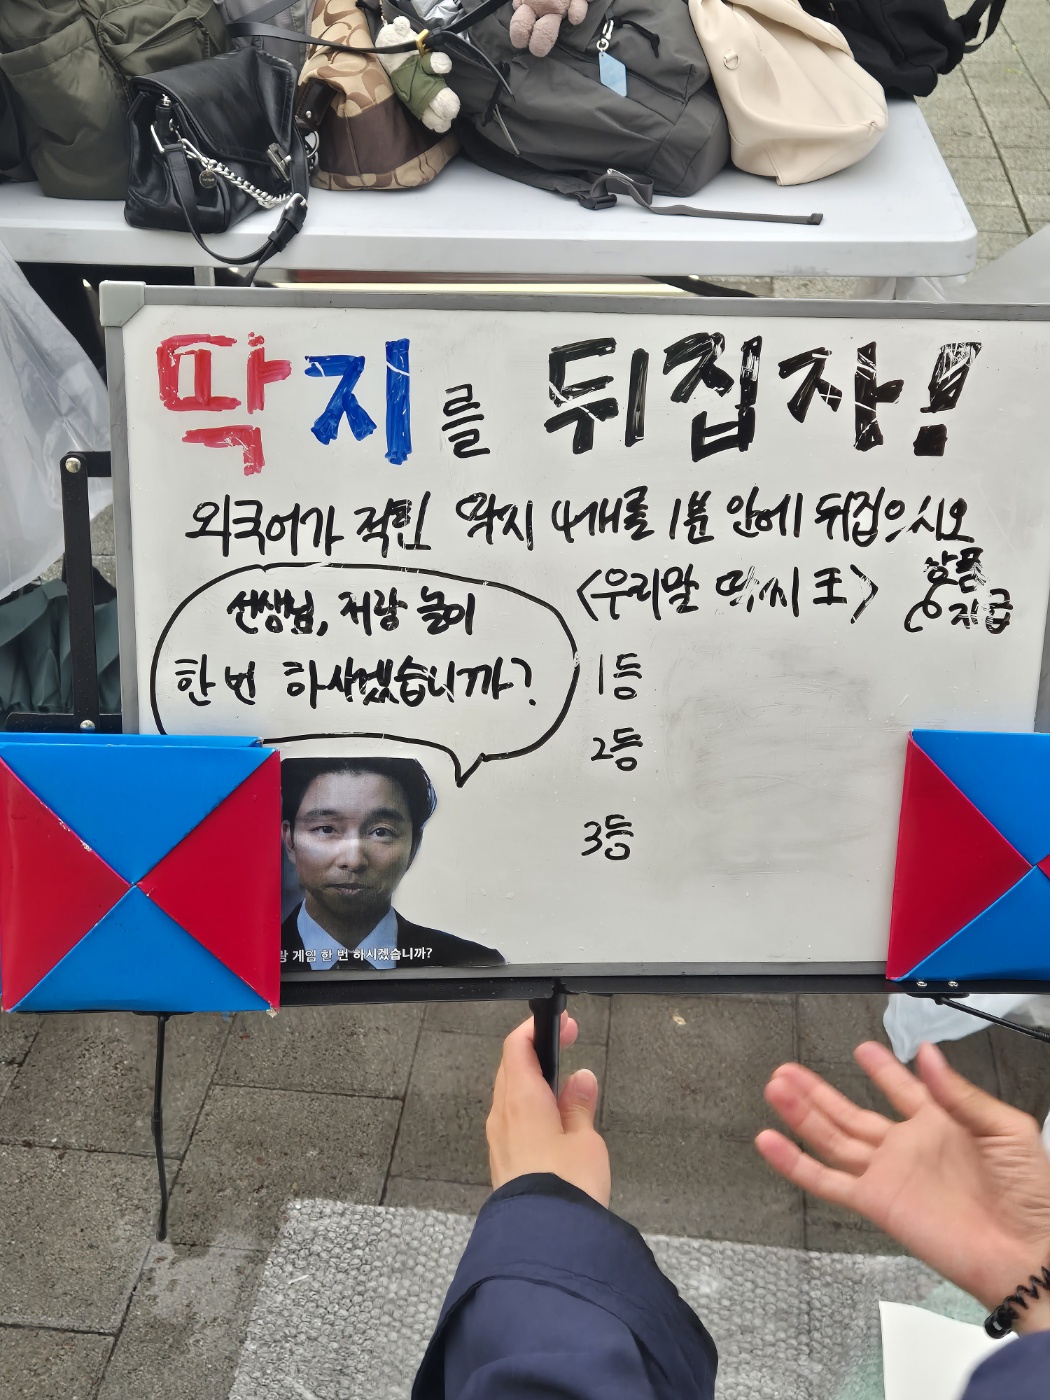 딱지를 뒤집자!
외국어가 적힌 딱지 4개를 1분 안에 뒤집으시오
<우리말 딱지 王>
상품
지급
선생님, 저랑 놀이
한 번 하시겠습니까?
1등
2등
3등
랑 게임 한 번 하시겠습니까?